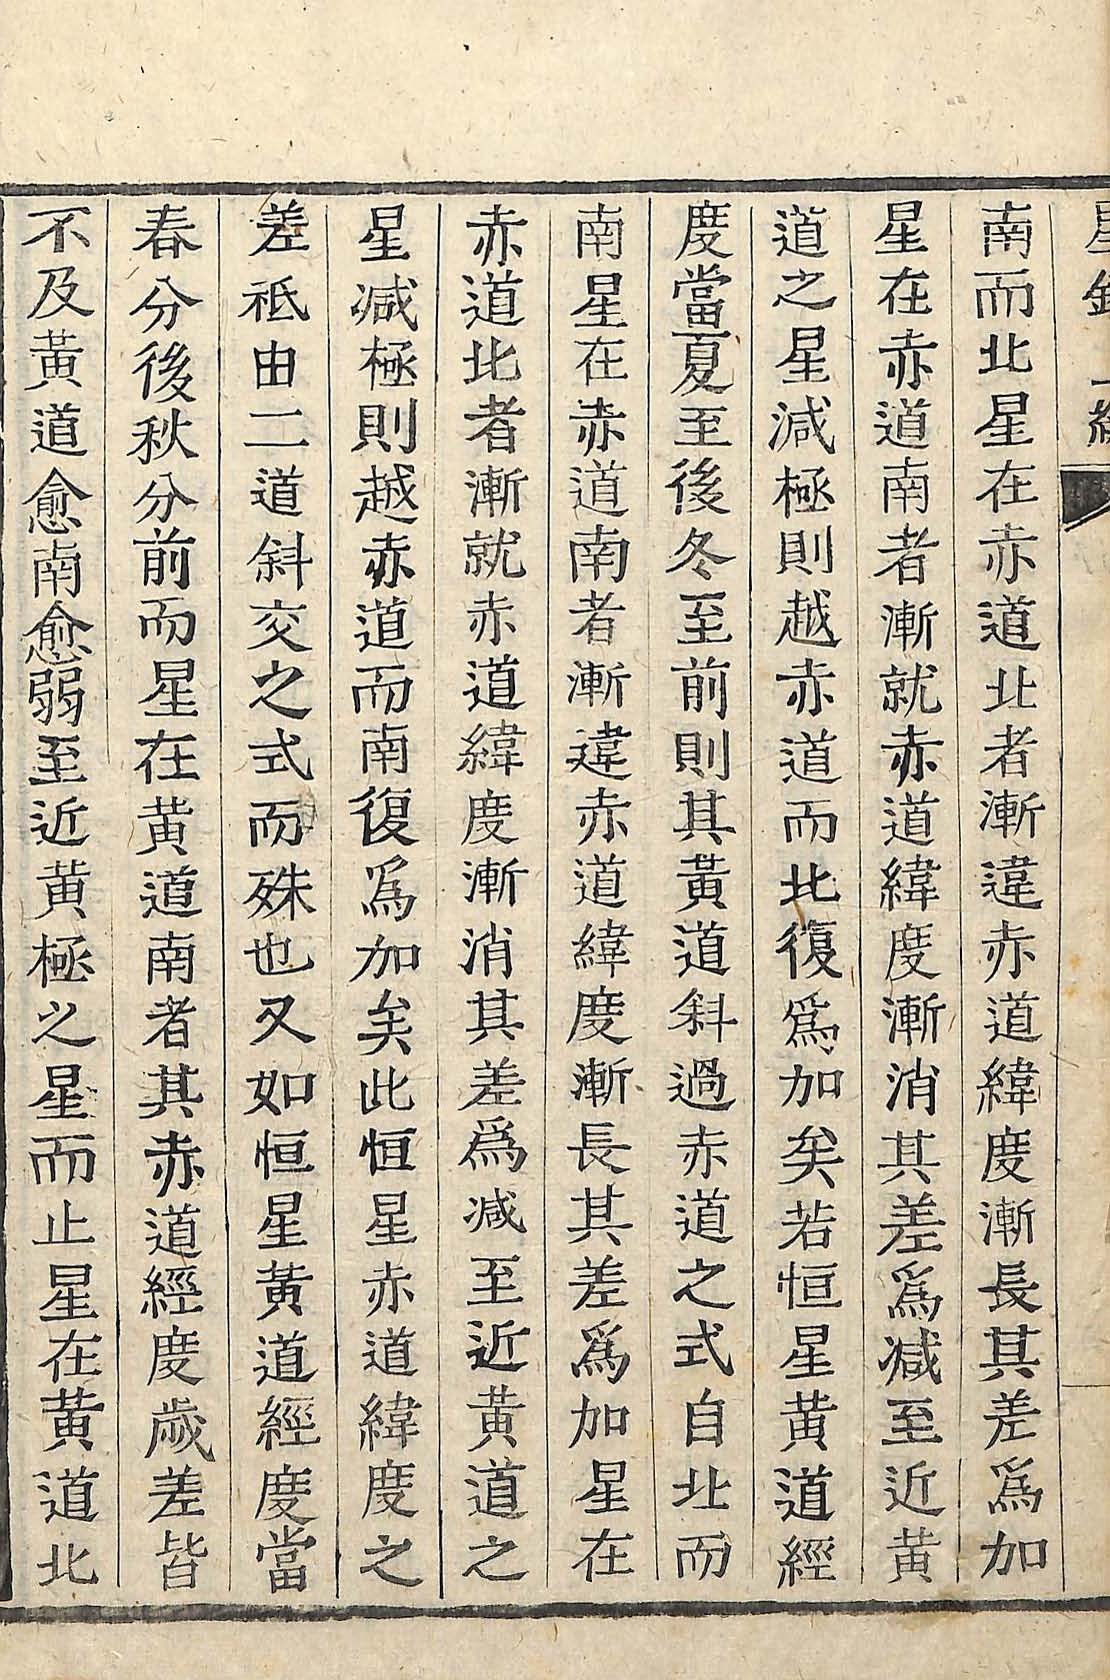 南而北星在赤道北者漸違赤道緯度漸長其差爲加
星在赤道南者漸就赤道緯度漸消其差爲减至近黄
道之星减極則越赤道而北復爲加矣若恒星黄道經
度當夏至後冬至前則其黃道斜過赤道之式自北而
南星在赤道南者漸違赤道緯度漸長其差爲加星在
赤道北者漸就赤道緯度漸消其差爲减至近黄道之
星减極則越赤道而南復爲加矣此恒星赤道緯度之
差祗由二道斜交之式而殊也又如恒星黄道經度當
春分後秋分前而星在黄道南者其赤道經度歲差皆
不及黃道愈南愈弱至近黄極之星而止星在黄道北